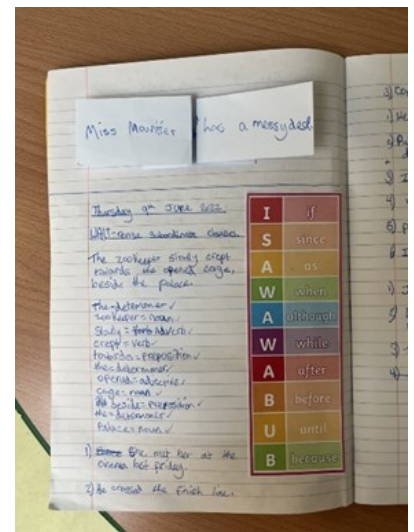 Miss Mounter has a messy desk.
Thursday 9th June 2022
WALT: revise subordinate clauses.
The zookeeper slowly crept
towards the opened cage,
beside the palace.
the = determiner ✓
zookeeper = noun ✓
slowly = Adverb ✓
crept = verb ✓
towards = preposition ✓
the = determiner ✓
opened = adjective ✓
cage = noun ✓
beside = preposition ✓
the = determiner ✓
Palace = noun ✓
1) She met her at the
last friday.
2) He crossed the finish line.
I if
S since
A as
W when
A although
W while
A after
B before
U until
B because